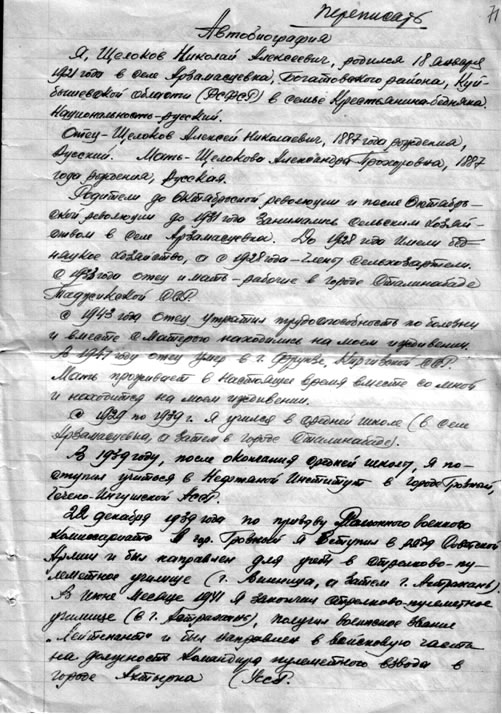 71
Переписать
Автобиография
Я, Щелоков Николай Алексеевич, родился 18 января
1921 года в селе Арзамасцевка, Богатовского района, Куй-
бышевской области (РСФСР) в семье крестьянина-бедняка.
Национальность-русский.
Отец-Щелоков Алексей Николаевич, 1887 года рождения,
русский. Мать-Щелокова Александра Прохоровна, 1887
года рождения, русская.
Родители до Октябрьской революции и после Октябрь-
ской революции до 1931 года занимались сельским хозяй-
ством в селе Арзамасцевка. До 1928 года имели бед-
няцкое хозяйство, а с 1928 года-члены сельхозартели.
С 1933 года отец и мать-рабочие в городе Сталинабаде
Таджикской ССР.
С 1943 года отец утратил трудоспособность по болезни
и вместе с матерью находились на моем иждивении.
В 1947 году отец умер в г. Фрунзе, Киргизской ССР.
Мать проживает в настоящее время вместе со мной
и находится на моем иждивении.
С 1929 по 1939 г. я учился в средней школе (в селе
Арзамасцевка, а затем в городе Сталинабаде).
В 1939 году, после окончания средней школы, я по-
ступил учиться в Нефтяной Институт в городе Грозном,
Чечено-Ингушской АССР.
22 декабря 1939 года по призыву Районного военного
комиссариата гор. Грозный я вступил в ряды Советской
Армии и был направлен для учебы в стрелково-пу-
леметное училище (г. Винница, а затем г. Астрахань).
В июне месяце 1941 я закончил стрелково-пулеметное
училище (в г. Астрахань), получил воинское звание
"Лейтенант" и был направлен в войсковую часть
на должность командира пулеметного взвода в
городе Ахтырка (УССР.